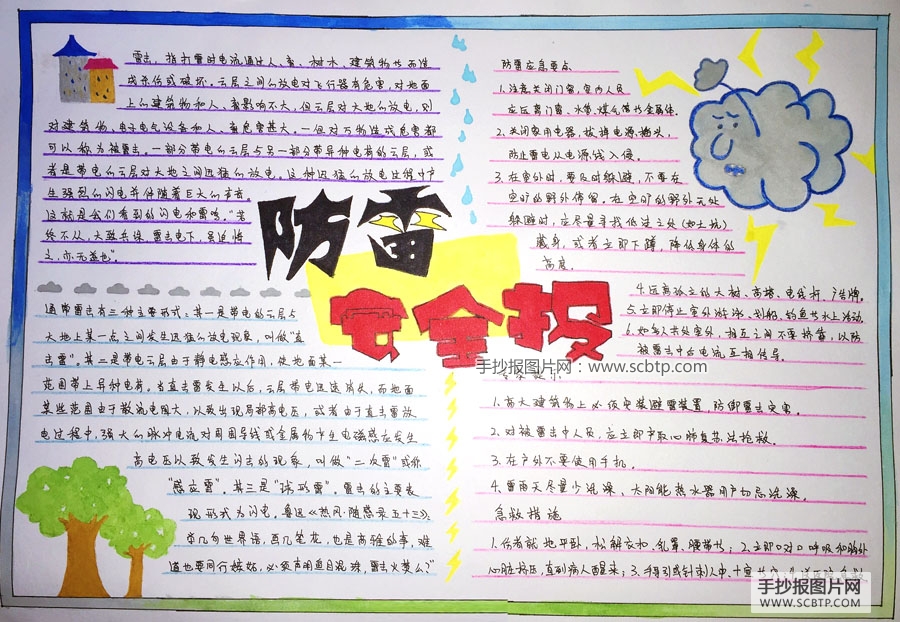 雷击，指打雷时电流通过人、畜、树木、建筑物等而造
成杀伤或破坏。云层之间的放电对飞行器有危害，对地面
上的建筑物和人、畜影响不大，但云层对大地的放电，则
对建筑物、电子电气设备和人、畜危害甚大。一但对万物造成危害都
可以称为被雷击。一部分带电的云层与另一部分带异种电荷的云层，或
者是带电的云层对大地之间迅猛的放电，这种迅猛的放电过程中产
生强烈的闪电并伴随着巨大的声音。
这就是我们看到的闪电和雷鸣。"若
终不从，大雄兵综，雷击电下，虽追悔
之，亦无益也"。
防雷
安全报
通常雷击有三种主要形式：其一是带电的云层与
大地上某一点之间发生迅猛的放电现象，叫做"直
击雷"。其二是带电云层由于静电感应作用，使地面某一
范围带上异种电荷。当直击雷发生以后，云层带电迅速消失，而地面
某些范围由于散流电阻大，以致出现局部高电压，或者由于直击雷放
电过程中，强大的脉冲电流对周围导线或金属物产生电磁感应发生
高电压以致发生闪击的现象，叫做"二次雷"或称
"感应雷"。其三是"球形雷"。雷击的主要表
现形式为闪电。鲁迅《热风·随感录五十三》：
学几句世界语，画几笔花，也是高雅的事，难
道也要同行嫉妒，必须声明鱼目混珠，雷击火焚么？"
防雷应急要点
1.注意关闭门窗，室内人员
应远离门窗、水管、煤气管等金属体。
2.关闭家用电器，拔掉电源插头，
防止雷电从电源线入侵。
3.在室外时，要及时躲避，不要在
空旷的野外停留。在空旷的野外无处
躲避时，应尽量寻找低洼之处（如土坑）
藏身，或者立即下蹲，降低身体的
高度。
4.远离孤立的大树、高塔、电线杆、广告牌。
5.立即停止室外游泳、划船、钓鱼等水上活动。
6.如多人共处室外，相互之间不要挤靠，以防
被雷击中后电流互相传导。
手抄报图片网：www.scbtp.com
1.高大建筑物上必须安装避雷装置，防御雷击灾害。
2.对被雷击中人员，应立即采取心肺复苏法抢救。
3.在户外不要使用手机。
4.雷雨天尽量少洗澡，太阳能热水器用户切忌洗澡。
急救措施
1.伤者就地平卧，松解衣扣、乳罩、腰带等；2.立即口对口呼吸和胸外
心脏挤压，直到病人醒来；3.手导引或针刺人中、十宣
手抄报图片网
WWW.SCBTP.COM